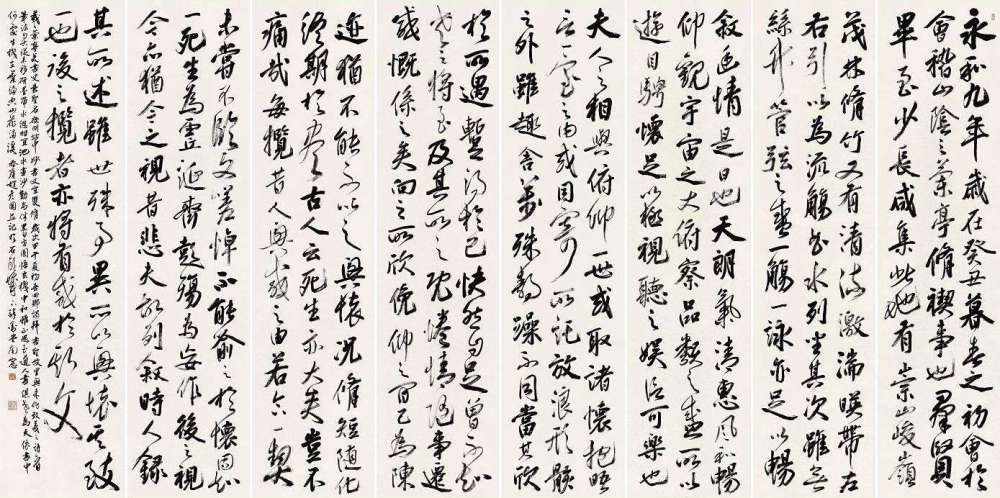 永和九年歲在癸丑暮春之初會於
會稽山陰之蘭亭脩禊事也羣賢
畢至少長咸集此地有崇山峻嶺
茂林脩竹又有清流激湍暎帶左
右引以為流觴曲水列坐其次雖無
絲竹管弦之盛一觴一詠亦足以暢
敘幽情是日也天朗氣清惠風和暢
仰觀宇宙之大俯察品類之盛所以
遊目騁懷足以極視聽之娛信可樂也
夫人之相與俯仰一世或取諸懷抱晤
言一室之內或因寄所託放浪形骸
之外雖趣舍萬殊靜躁不同當其欣
於所遇暫得於己快然自足曾不知
老之將至及其所之既惓情隨事遷
感慨係之矣向之所欣俛仰之間已為陳
迹猶不能不以之興懷況脩短隨化
終期於盡古人云死生亦大矣豈不
痛哉每攬昔人興感之由若合一契
未嘗不臨文嗟悼不能喻之於懷固知
一死生為虛誕齊彭殤為妄作後之視
今亦猶今之視昔悲夫故列敘時人錄
其所述雖世殊事異所以興懷其致
一也後之攬者亦將有感於斯文